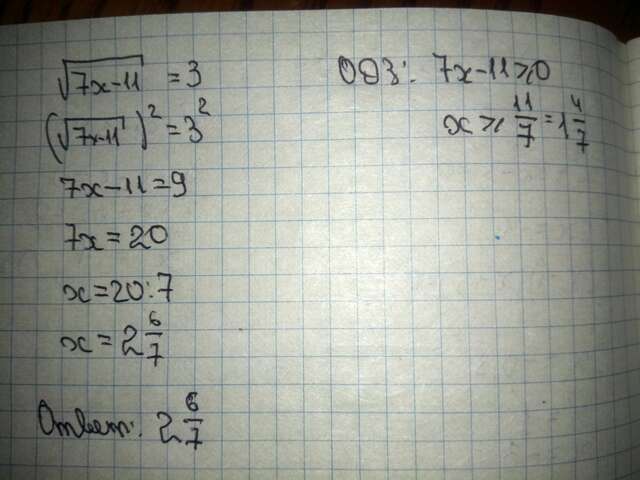 √7x-11 = 3
(√7x-11)² = 3²
7x-11=9
7x=20
x=20:7
x=2 6/7
Ответ: 2 6/7
ОДЗ: 7x-11⩾0
x⩾ 11/7 = 1 4/7